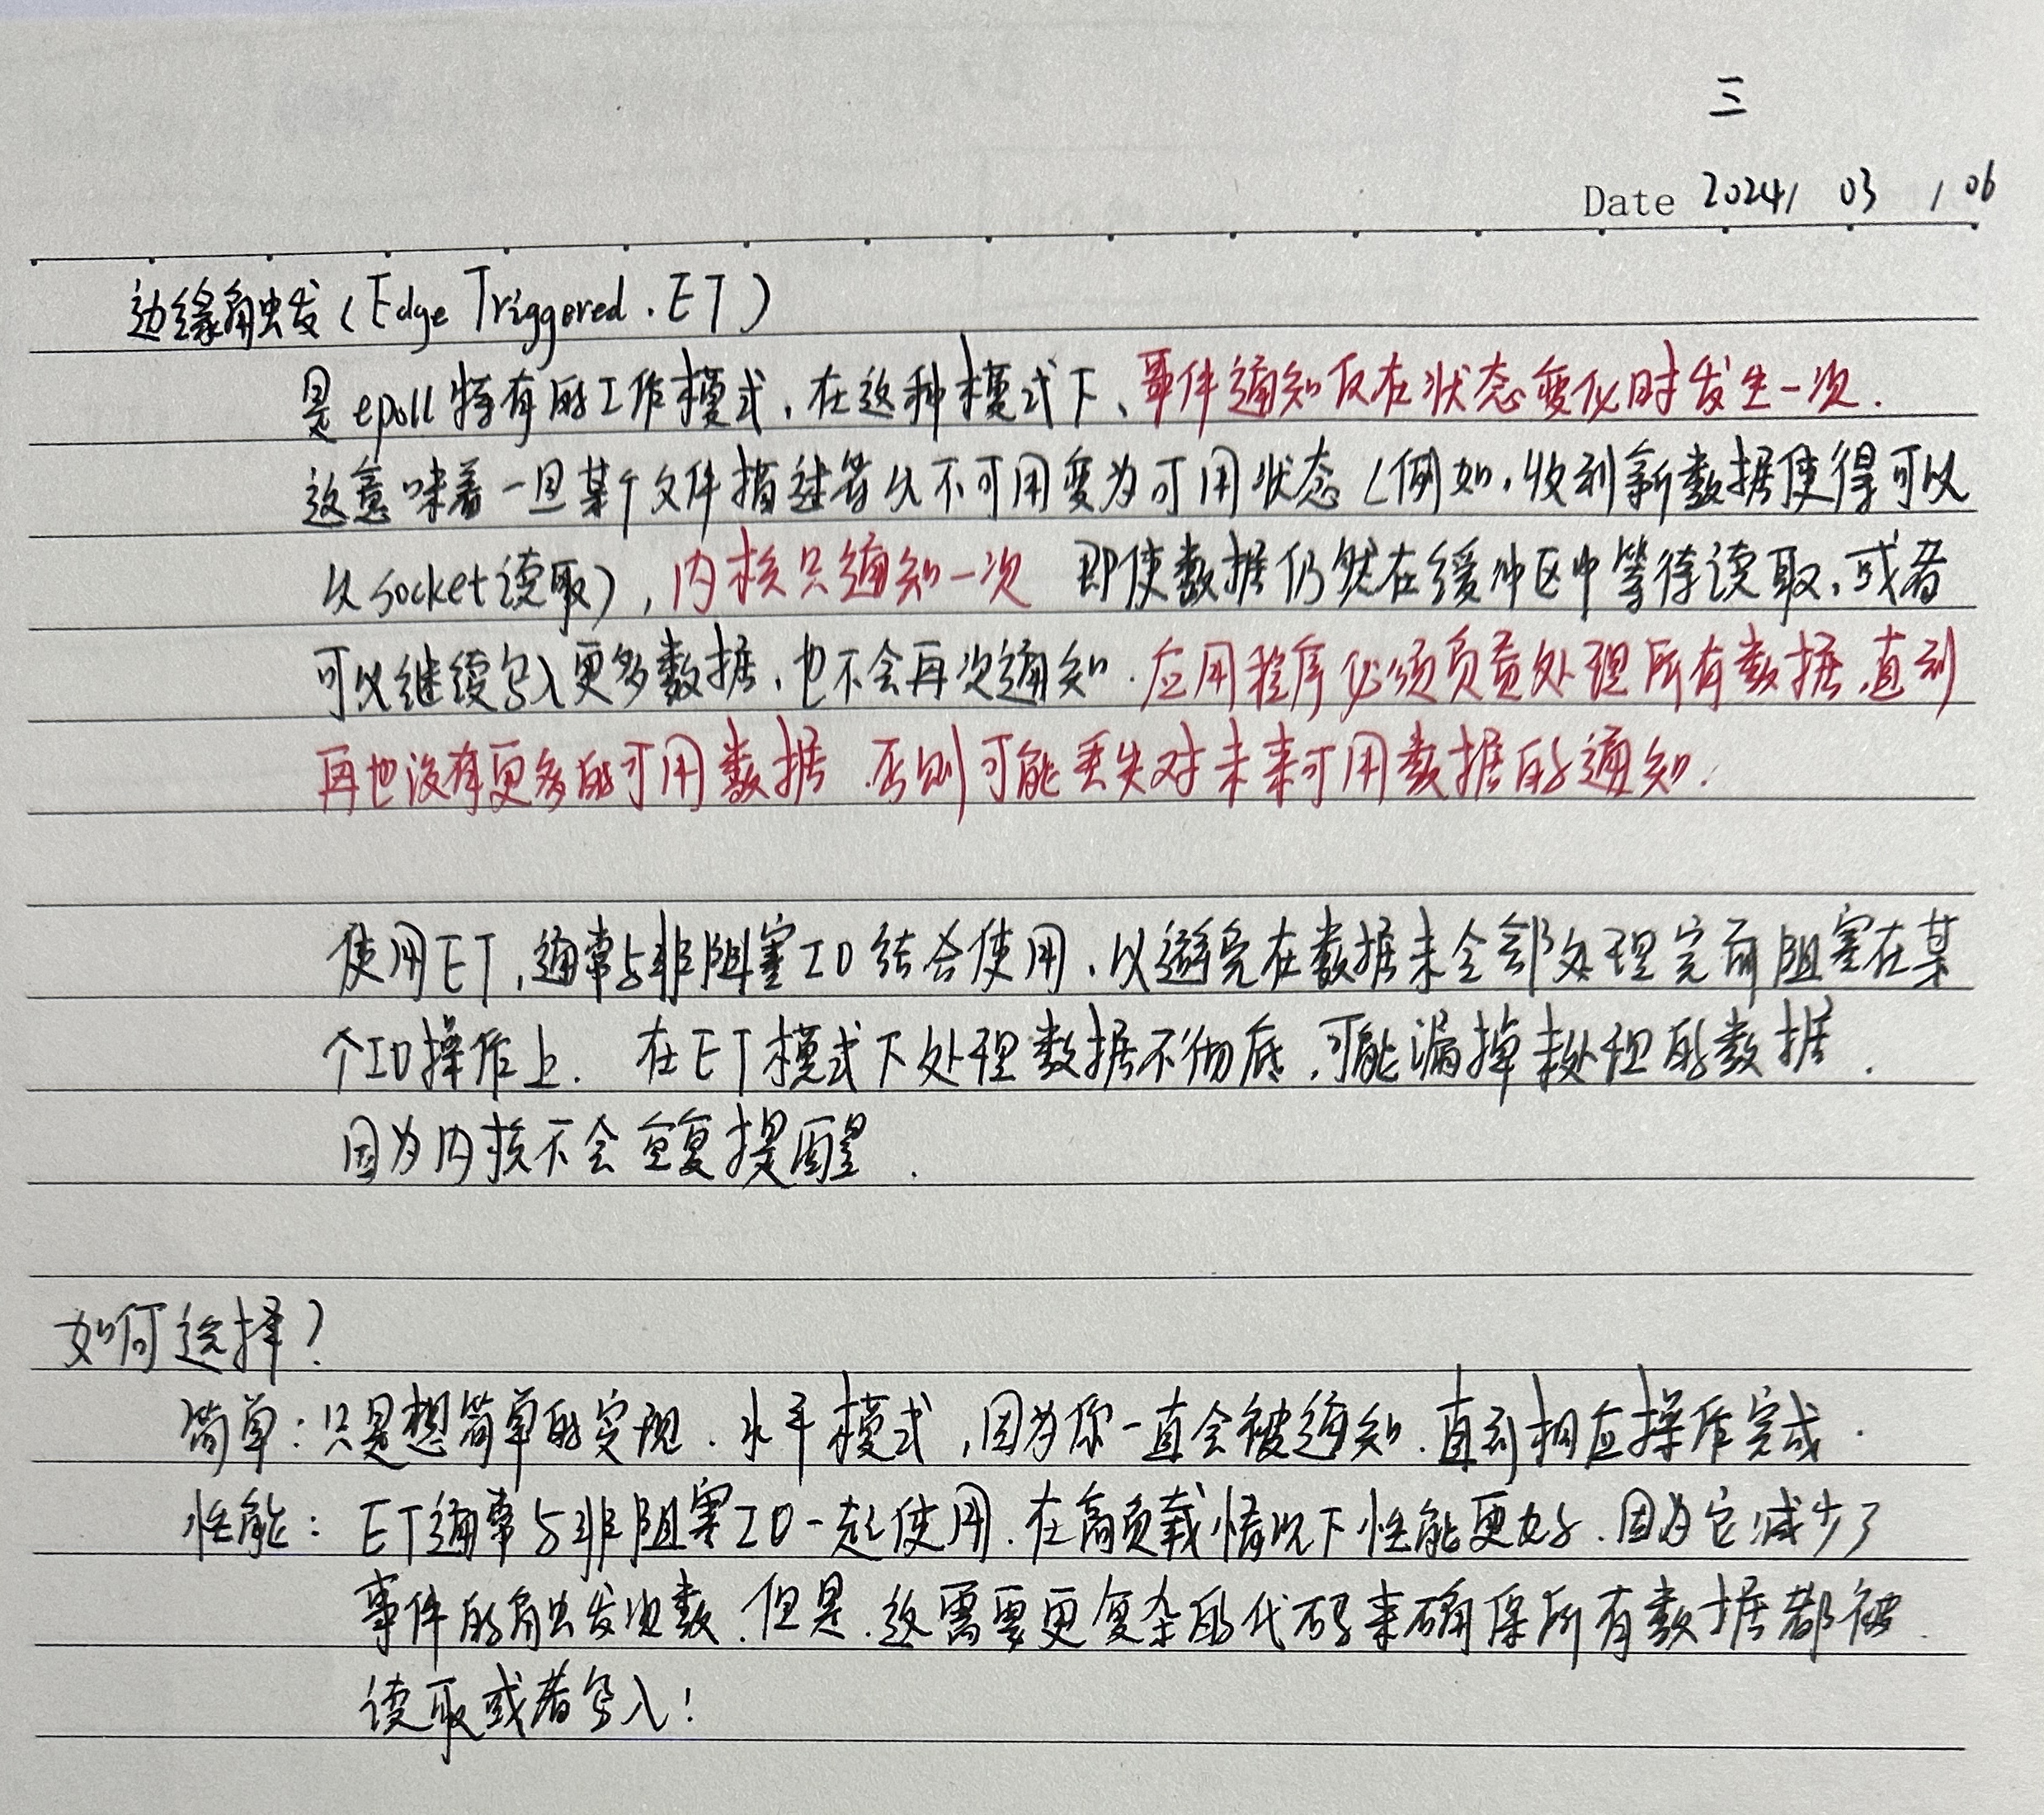 三
Date 2024/ 03 / 06
边缘触发(Edge Triggered.ET)
是epoll特有的工作模式,在这种模式下、事件通知仅在状态变化时发生一次.
这意味着一旦某个文件描述符从不可用变为可用状态(例如,收到新数据使得可以
从socket读取),内核只通知一次 即使数据仍然在缓冲区中等待读取,或者
可以继续写入更多数据,也不会再次通知.应用程序必须负责处理所有数据,直到
再也没有更多的可用数据.否则可能丢失对未来可用数据的通知.
使用ET,通常与非阻塞IO结合使用,以避免在数据未全部处理完前阻塞在某
个IO操作上. 在ET模式下处理数据不彻底,可能漏掉未处理的数据.
因为内核不会重复提醒.
如何选择?
简单:只是想简单的实现.水平模式,因为你一直会被通知.直到相应操作完成.
性能: ET通常与非阻塞IO一起使用.在高负载情况下性能更好.因为它减少了
事件的触发次数.但是.这需要更复杂的代码来确保所有数据都被
读取或者写入!